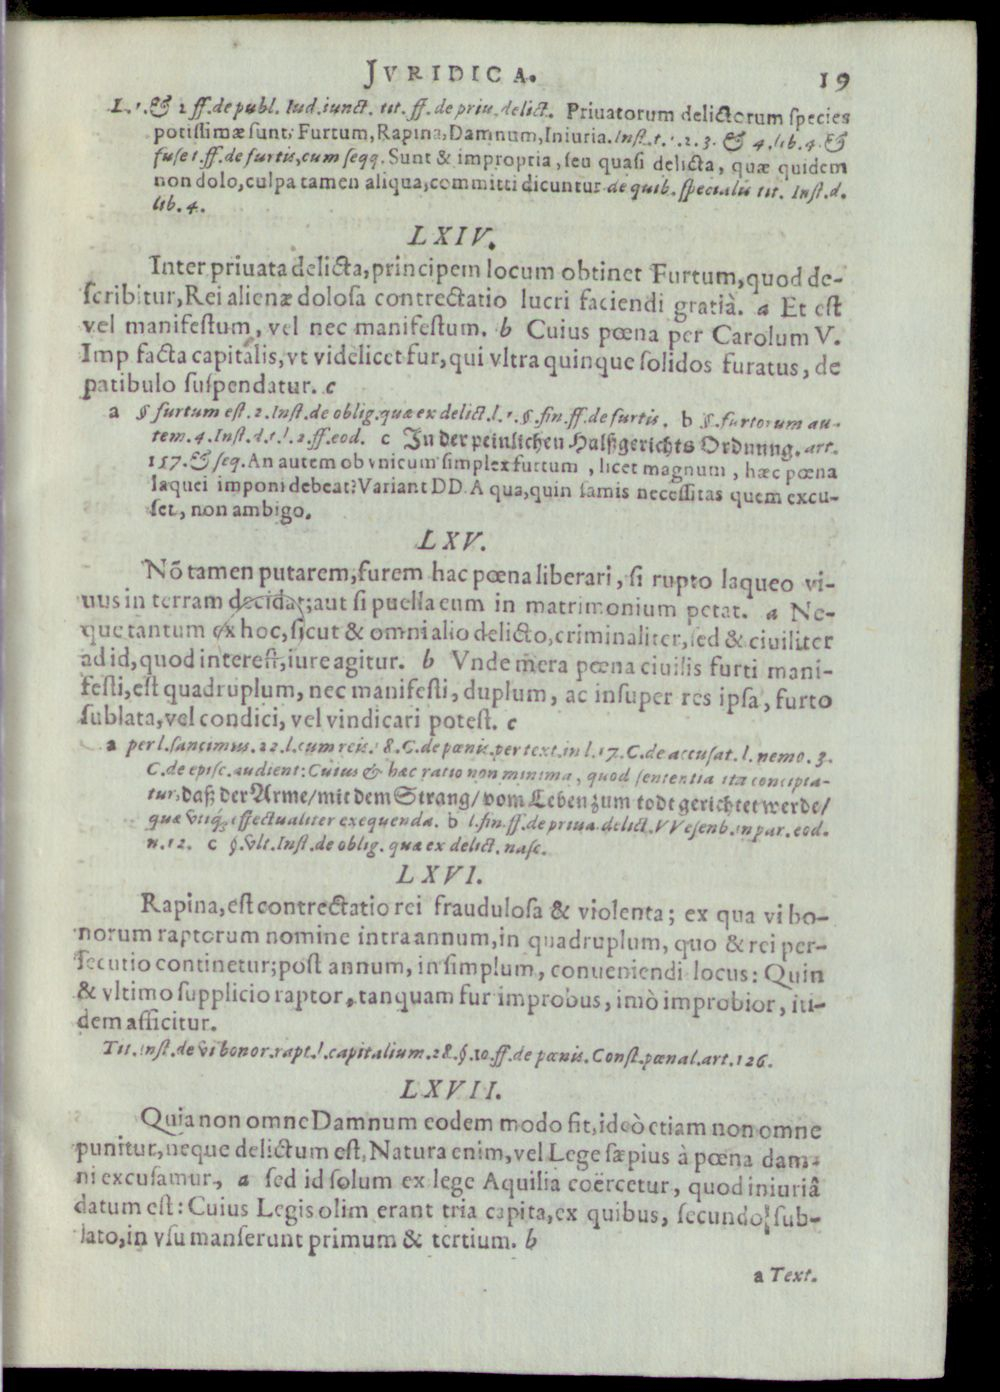 JVRIDICA. 19
L. 1. & 2 ff. de publ. Iud. iunct. tit. ff. de priu. delict. Priuatorum delictorum species
potissimæ sunt, Furtum, Rapina, Damnum, Iniuria. Inst. t. 1. 2. 3. & 4. lib. 4. &
fuse t. ff. de furtis, cum seqq. Sunt & impropria, seu quasi delicta, quæ quidem
non dolo, culpa tamen aliqua, committi dicuntur de quib. specialis tit. Inst. d.
lib. 4.
LXIV.
Inter priuata delicta, principem locum obtinet Furtum, quod de-
scribitur, Rei alienæ dolosa contrectatio lucri faciendi gratià. a Et est
vel manifestum, vel nec manifestum. b Cuius pœna per Carolum V.
Imp facta capitalis, vt videlicet fur, qui vltra quinque solidos furatus, de
patibulo suspendatur. c
a § furtum est. 2. Inst. de oblig. quæ ex delict. l. 1. §. fin. ff. de furtis. b §. furtorum au-
tem. 4. Inst. d. t. l. 2. ff. eod. c In der peinlichen Halßgerichts Ordnung. art.
157. & seq. An autem ob vnicum simplex furtum, licet magnum, hæc pœna
laquei imponi debeat? Variant DD. A qua, quin famis necessitas quem excu-
set, non ambigo.
LXV.
Nõ tamen putarem, furem hac pœna liberari, si rupto laqueo vi-
uus in terram decidat; aut si puella eum in matrimonium petat. a Ne-
que tantum ex hoc, sicut & omni alio delicto, criminaliter, sed & ciuiliter
ad id, quod interest, iure agitur. b Vnde mera pœna ciuilis furti mani-
festi, est quadruplum, nec manifesti, duplum, ac insuper res ipsa, furto
sublata, vel condici, vel vindicari potest. c
a per l. sancimus. 22. l. cum reis. 18. C. de pœnis. per text. in l. 17. C. de accusat. l. nemo. 3.
C. de episc. audient: Cuius & hæc ratio non minima, quod sententia ita concipia-
tur, daß der Arme/ mit dem Strang/ vom Leben zum todt gerichtet werde/
quæ vtiq; effectualiter exequenda. b l. fin. ff. de priua. delict. VVesenb. in par. eod.
n. 12. c §. vlt. Inst. de oblig. quæ ex delict. nasc.
LXVI.
Rapina, est contrectatio rei fraudulosa & violenta; ex qua vi bo-
norum raptorum nomine intra annum, in quadruplum, quo & rei per-
secutio continetur; post annum, in simplum, conueniendi locus: Quin
& vltimo supplicio raptor, tanquam fur improbus, imò improbior, iti-
dem afficitur.
Tit. inst. de vi bonor. rapt. l. capitalium. 28. §. 10. ff. de pœnis. Const. pœnal. art. 126.
LXVII.
Quia non omne Damnum eodem modo fit, ideò etiam non omne
punitur, neque delictum est, Natura enim, vel Lege sæpius à pœna dam-
ni excusamur, a sed id solum ex lege Aquilia coërcetur, quod iniuriâ
datum est: Cuius Legis olim erant tria capita, ex quibus, secundo sub-
lato, in vsu manserunt primum & tertium. b
a Text.